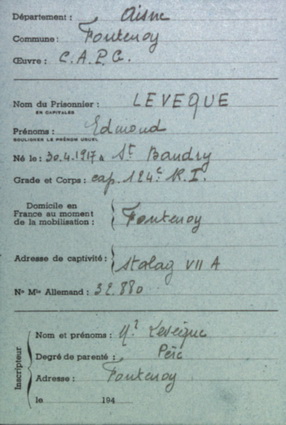 Département : Aisne
Commune : Fontenoy
Œuvre : C.A.P.G.
Nom du Prisonnier : LEVEQUE
EN CAPITALES
Prénoms : Edmond
SOULIGNER LE PRÉNOM USUEL
Né le : 30.4.1917 à St Bandry
Grade et Corps : cap. 124e R.I.
Domicile en
France au moment
de la mobilisation : Fontenoy
Adresse de captivité : Stalag VII A
No Mle Allemand : 32.880
Inscripteur
Nom et prénoms : Mr Leveque
Degré de parenté : Père
Adresse : Fontenoy
le 194